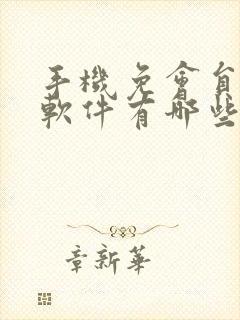 手機免會
軟件有哪些
章新華